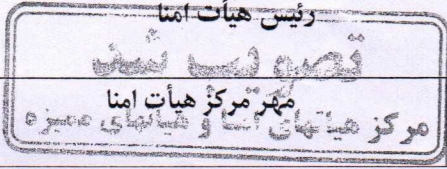 رئیس هیأت امنا
تصویب شد
مهر مرکز هیأت امنا
مرکز هیأتهای امنا و هیأتهای ممیزه